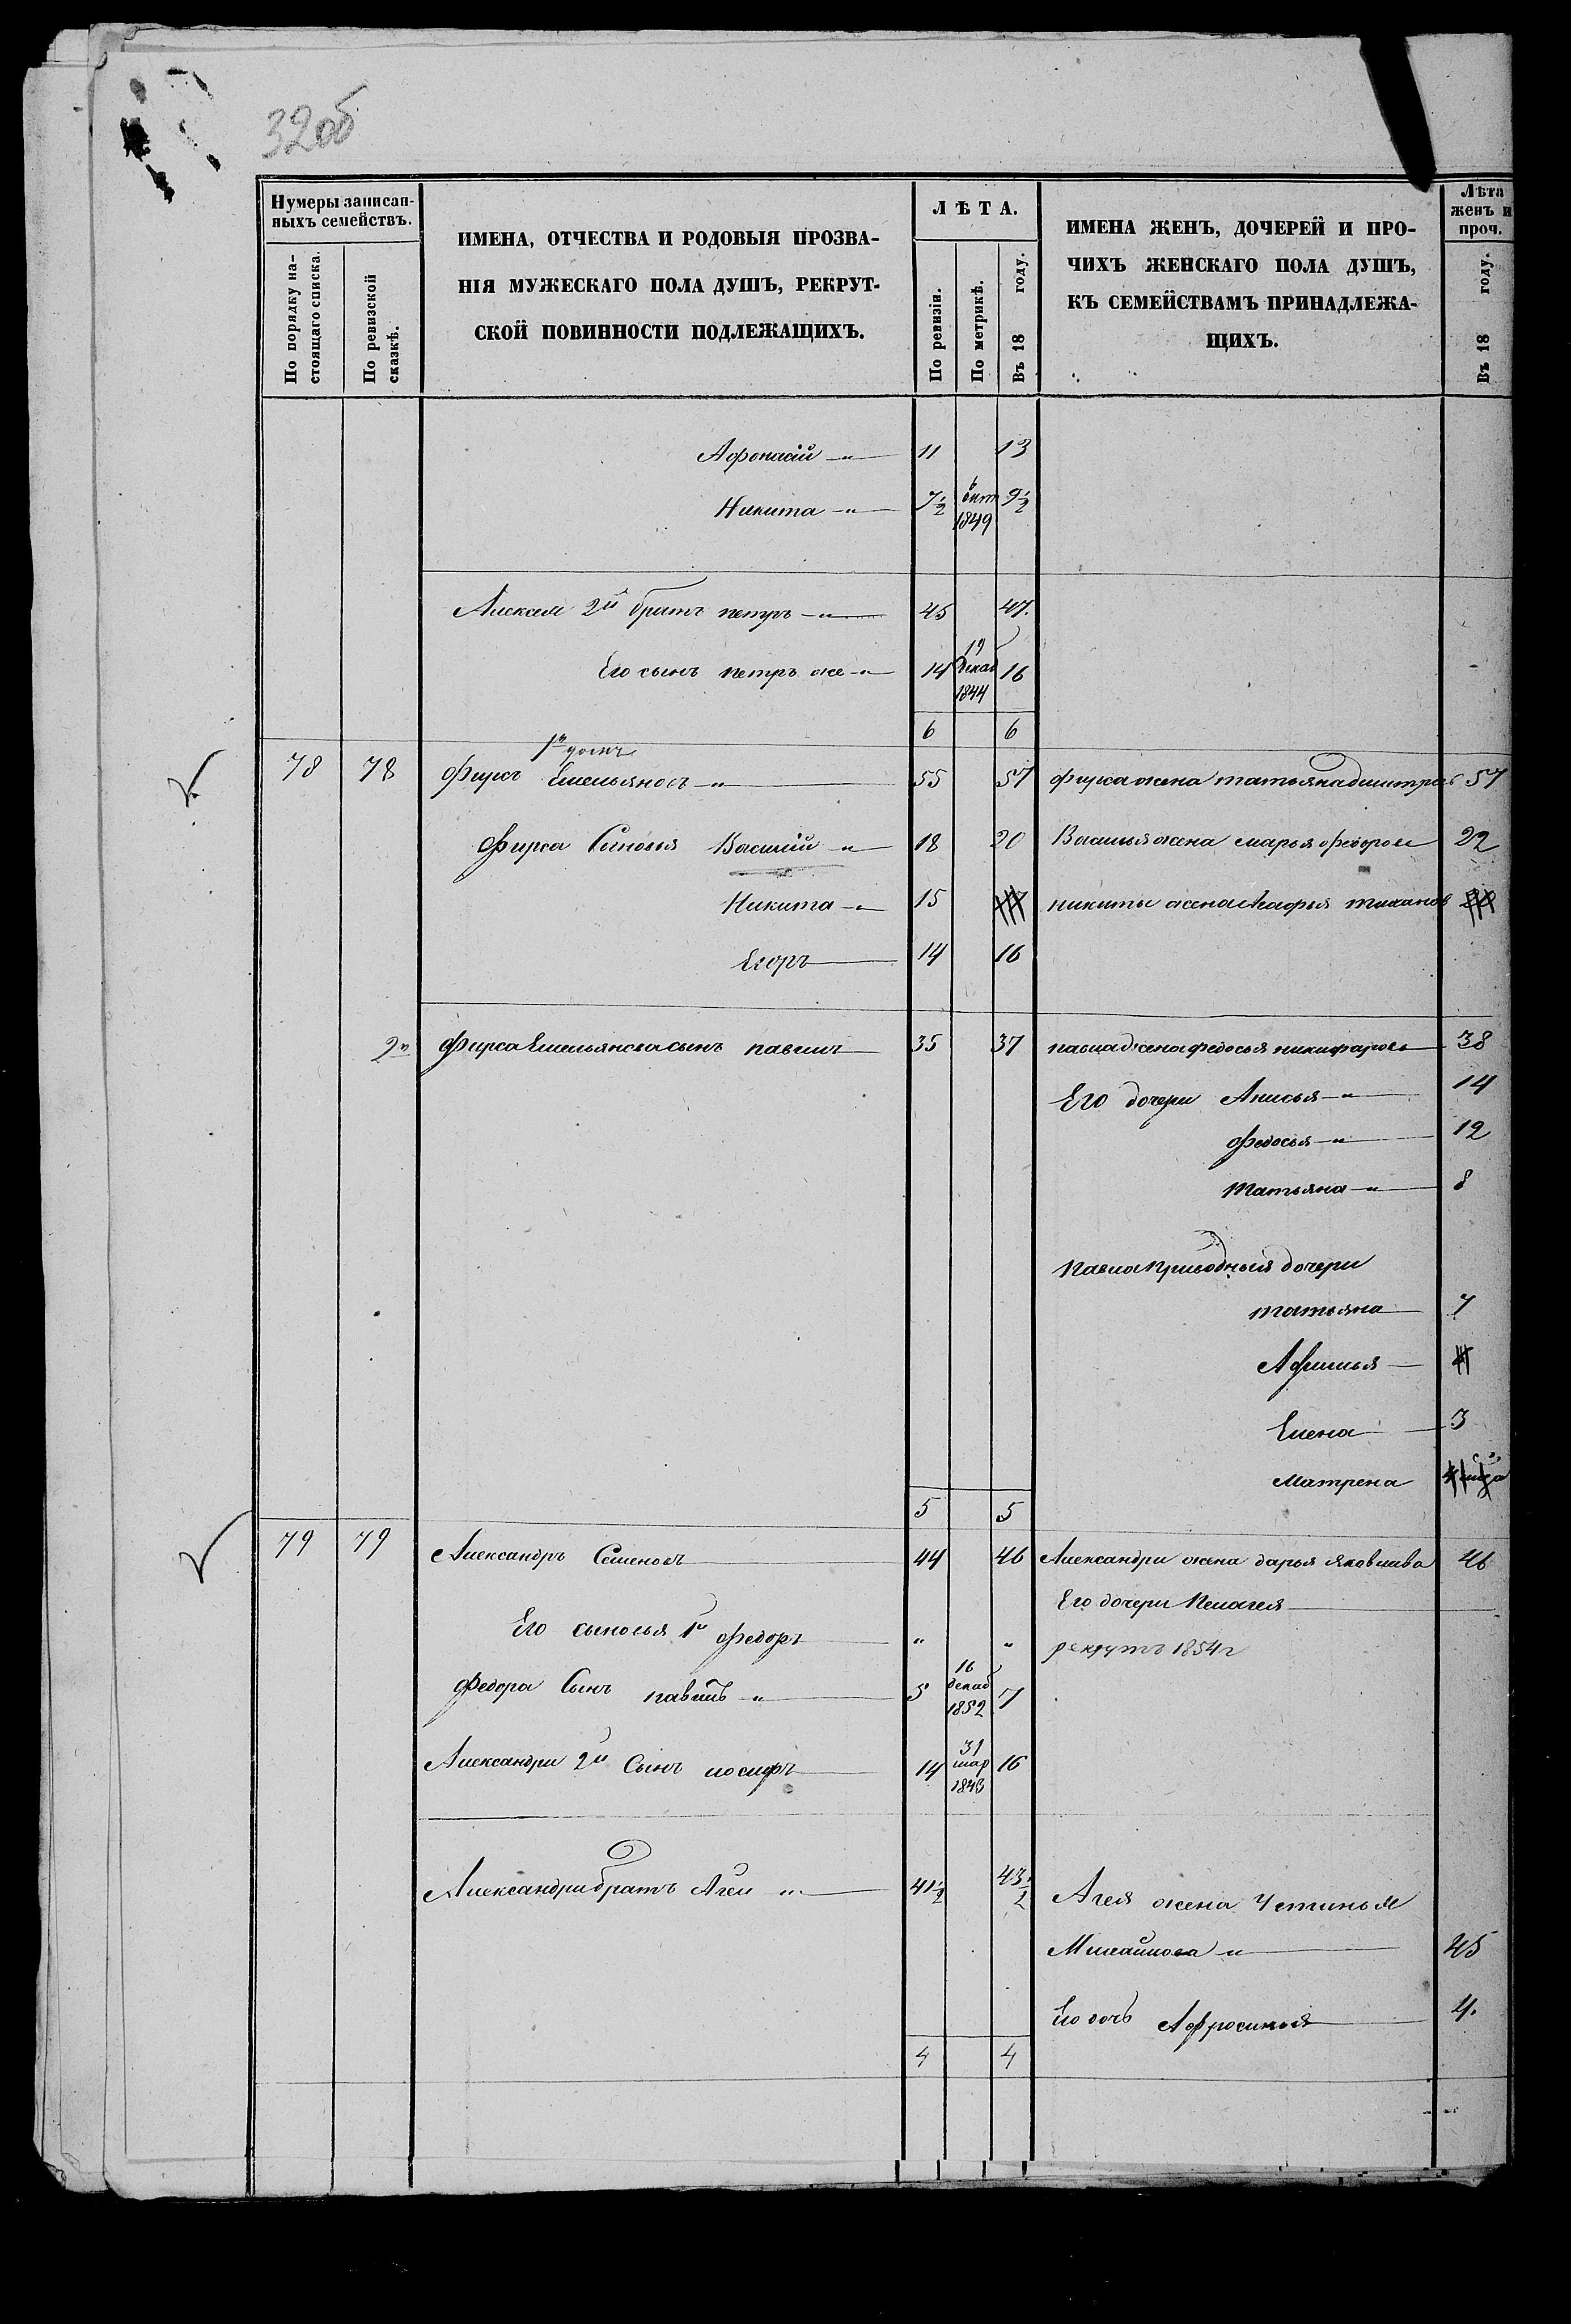 32об
Нумеры записан-
ныхъ семействъ.
По порядку на-
стоящаго списка.
По ревизской
сказкѣ.
ИМЕНА, ОТЧЕСТВА И РОДОВЫЯ ПРОЗВА-
НІЯ МУЖЕСКАГО ПОЛА ДУШЪ, РЕКРУТ-
СКОЙ ПОВИННОСТИ ПОДЛЕЖАЩИХЪ.
ЛѢТА.
По ревизіи.
По метрикѣ.
Въ 18 году.
ИМЕНА ЖЕНЪ, ДОЧЕРЕЙ И ПРО-
ЧИХЪ ЖЕНСКАГО ПОЛА ДУШЪ,
КЪ СЕМЕЙСТВАМЪ ПРИНАДЛЕЖА-
ЩИХЪ.
Лѣта
женъ и
проч.
Въ 18 году.
Афонасій -"- 11 13
Никита -"- 7½ 9½
1849
Алексея 2й братъ петръ -"- 45 47.
Его сынъ петръ же -"- 14 19 Декаб 1844 16
6 6
78 78 Фирсъ Емельяновъ -"- 55 57 фирса жена татьяна дмитрев 57
Фирса Сыновья Василий -"- 18 20 Василья жена марья федоров 22
Никита -"- 15 никиты жена Агафья тиханов
Егоръ 14 16
2й Фирса Емельянова сынъ павелъ 35 37 павла жена федосья никифаров 38
Его дочери Анисья -"- 14
федосья -"- 12
Татьяна -"- 8
Павла приводныя дочери
татьяна 7
Афимья
Елена 3
Матрена
5 5
79 79 Александръ Семеновъ 44 46 Александри жена дарья яковлива 46
Его дочери Пелагея
Его сыновья 1й федоръ " " рекрутъ 1854г
Федора Сынъ павилъ " 5 16 декаб 1852 7
Александри 2й Сынъ иосифъ 14 31 мар 1843 16
Александри братъ Агеи " 41½ 43½ Агея жена Устинья
Михайлова " 45
Его дочь Афросинья 4.
4 4